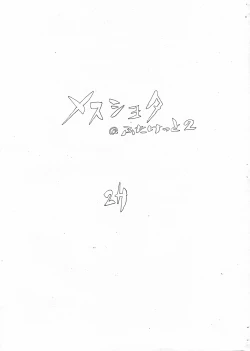 メスショタ
@ふたけっと2
24